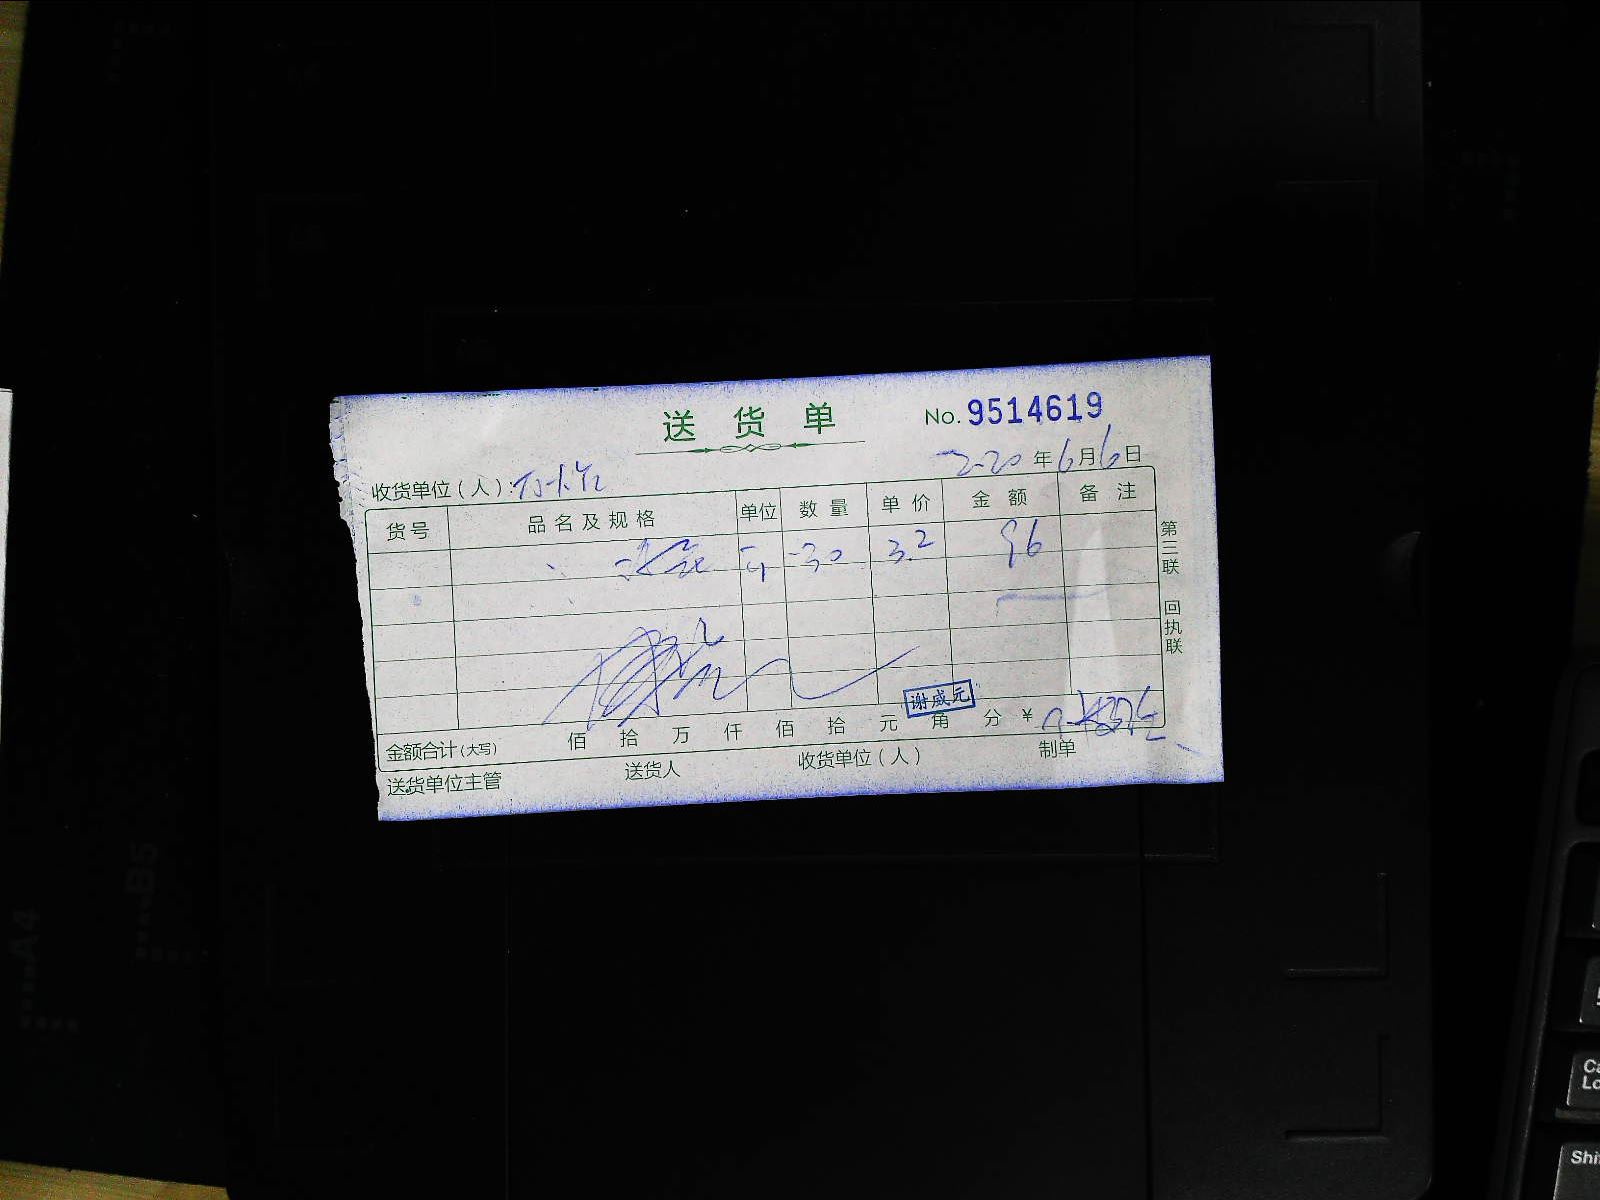 送货单
No. 9514619
2020年6月6日
收货单位(人):
货号 品名及规格 单位 数量 单价 金额 备注
30 3.2 96
第三联 回执联
谢威元
金额合计(大写) 佰 拾 万 仟 佰 拾 元 角 分 ¥
送货单位主管 送货人 收货单位(人) 制单
A4
B5
Shi